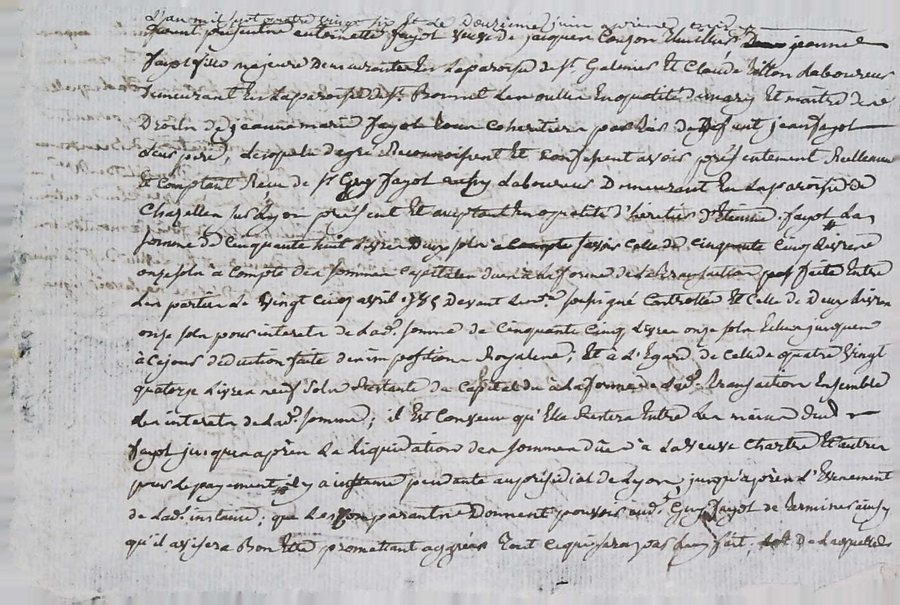 L'an mil sept quatre vingt six et Le Douzieme juin apres
furent presentes antoinette fayol veuve de jacques Conson jeanne
fayol fille majeure Demeurantes En La paroisse de St. Galmier Et Claude Laboureur
Demeurant En La paroisse de St. Bonnet Les oulles En qualité de mary Et maitre des
Droits de jeanne marie fayol tous cohertiers par Eux du Deffunt jean fayol
Leur pere, Lesquels de gré Reconnoissent Et confessent avoir présentement Reellement
Et comptant Recu de Sr. Guy fayol Laboureur Demeurant En La paroisse de
Chazelles sur Lyon present Et acceptant En qualité d'heritier d'Etienne fayol La
somme de Cinquante huit Livres Deux sols a Compte sçavoir Celle de cinquante Cinq Livres
onze sols a Compte des sommes capitales dues a La forme de La transaction passée Entre
Les parties Le vingt cinq avril 1785 Devant Le nre. soussigné Controllée Et Celle de Deux Livres
onze sols pour interets de Lad. somme de Cinquante Cinq Livres onze sols Echus jusques
a ce jour deduction faite des impositions Royalles; Et a L'Egard de Celle de quatre vingt
quatorze Livres neuf sols Restante du Capital du a La forme de Lad. transaction Ensemble
Les interets de Lad. somme; il Est Convenu qu'Elle Restera Entre Les mains dud.
fayol jusques apres La Liquidation des sommes dües a La veuve Chartre Et autres
pour Le payement il y a instance pendante au présidial de Lyon, jusqu'apres L'Evenement
de Lad. instance; que Les Comparants Donnent pouvoir aud. Guy fayol de terminer ainsy
qu'il avisera Bon Etre promettant aggréer tout ce qui sera par Luy fait, de Laquelle